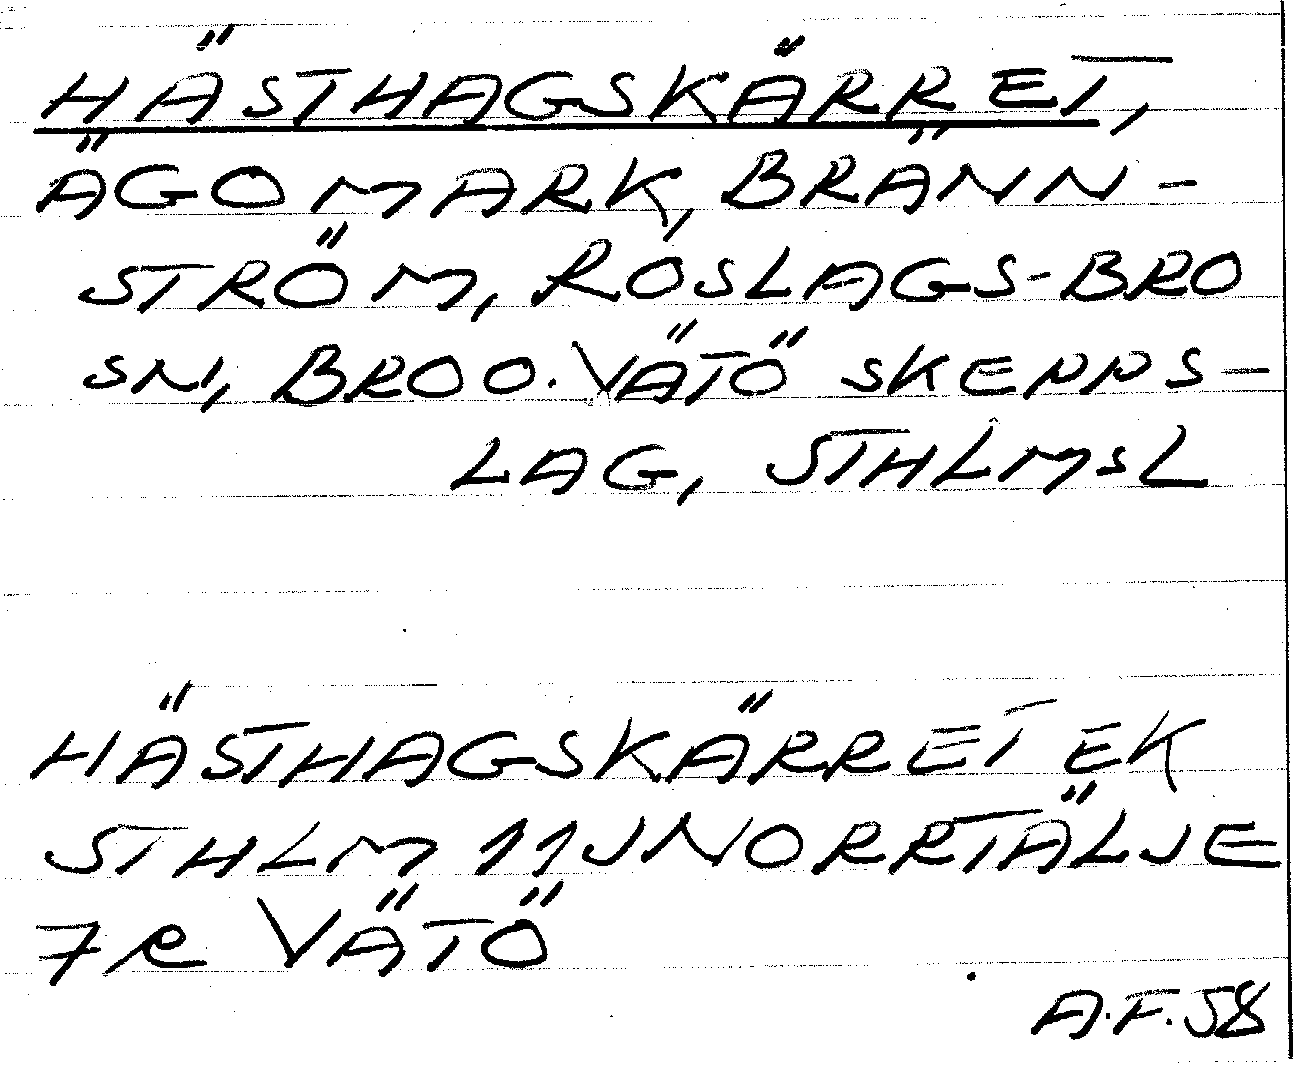 HÄSTHAGSKÄRRET,
ÄGOMARK, BRÄNN-
STRÖM, ROSLAGS-BRO
SN, BRO O. VÄTÖ SKEPPS-
LAG, STHLMSL
HÄSTHAGSKÄRRET EK
STHLM 11J NORRTÄLJE
7R VÄTÖ
A.F. 58